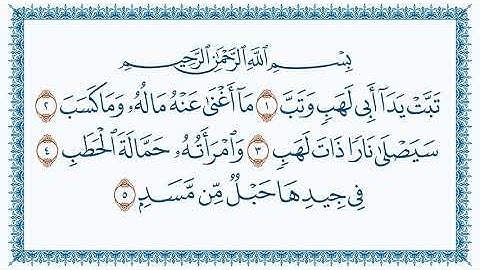 بِسْمِ ٱللَّهِ ٱلرَّحْمَٰنِ ٱلرَّحِيمِ
تَبَّتْ يَدَآ أَبِي لَهَبٍ وَتَبَّ ١ مَآ أَغْنَىٰ عَنْهُ مَالُهُۥ وَمَا كَسَبَ ٢
سَيَصْلَىٰ نَارًا ذَاتَ لَهَبٍ ٣ وَٱمْرَأَتُهُۥ حَمَّالَةَ ٱلْحَطَبِ ٤
فِي جِيدِهَا حَبْلٌ مِّن مَّسَدٍۭ ٥